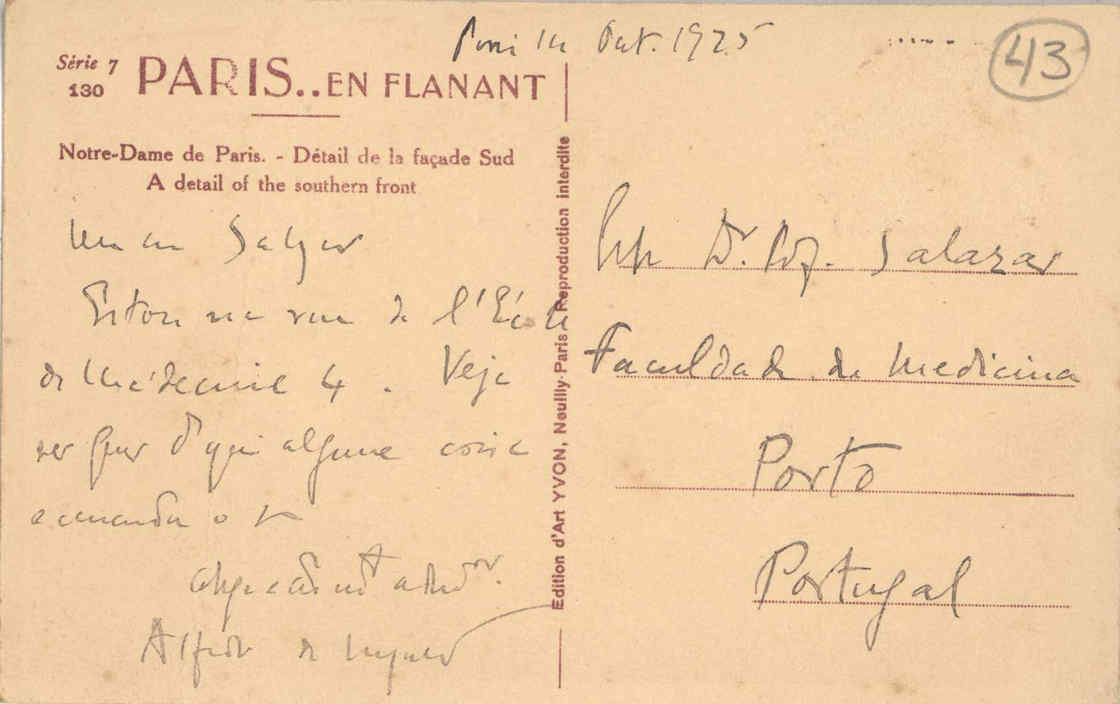 Paris 14 Out. 1925
43
Série 7
130
PARIS..EN FLANANT
Notre-Dame de Paris. - Détail de la façade Sud
A detail of the southern front
Meu caro Salazar
Estou na rue de l'École
de Médecine 4. Veja
se quer d'aqui alguma coisa
e mande o
Alfredo de
Edition d'Art YVON, Neuilly-Paris Reproduction interdite
Dr. Salazar
Faculdade de Medicina
Porto
Portugal